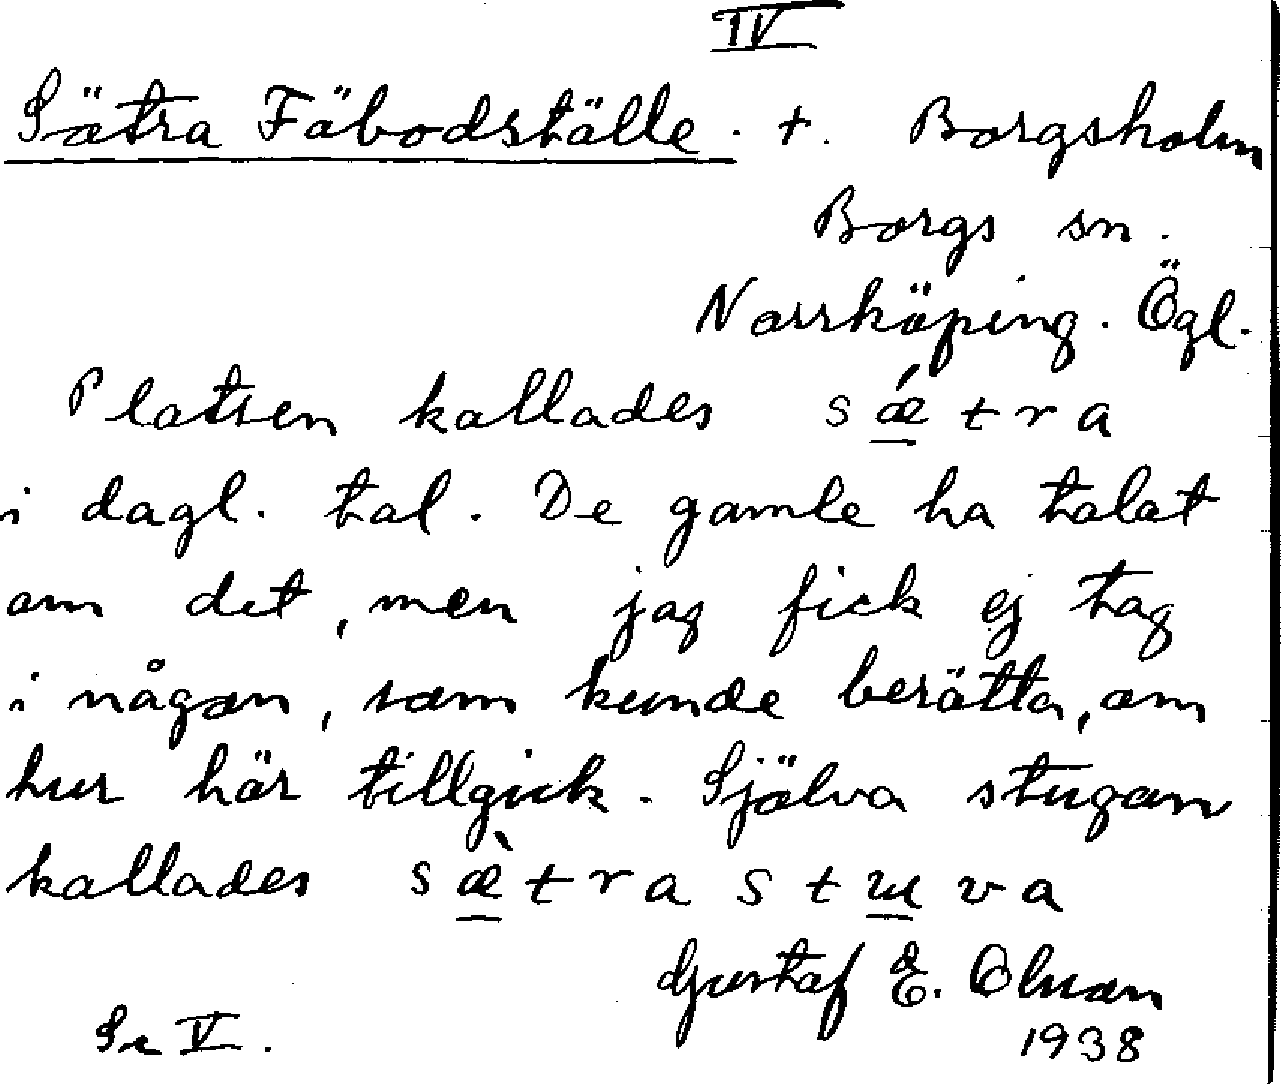 IV
Sätra Fäbodställe. t. Borgsholm
Borgs sn.
Norrköping. Ögl.
Platsen kallades sǽtra
i dagl. tal. De gamle ha talat
om det, men jag fick ej tag
i någon, som kunde berätta, om
hur här tillgick. Själva stugan
kallades sæ̀tra stɯva
Gustaf E. Olsson
1938
Se V.